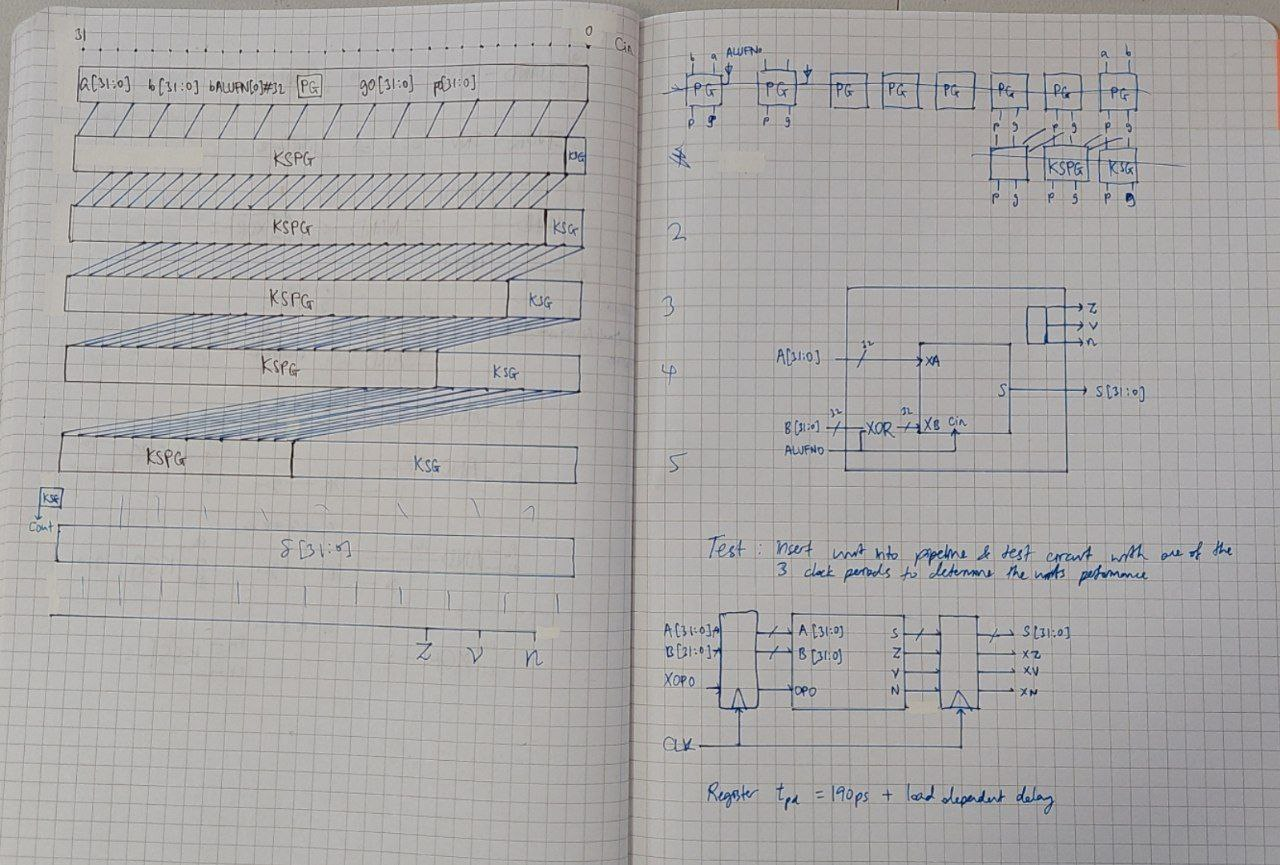 31 0 Cin
a[31:0] b[31:0] bALUFN[0]#32 PG g0[31:0] p0[31:0]
KSPG KSG
KSPG KSG
KSPG KSG
KSPG KSG
KSPG KSG
KSG
Cout
S[31:0]
Z V n
b a ALUFN0 a b
PG PG PG PG PG PG PG PG
p g p g p g p g p g
KSPG KSG
p g p g p g
2
3
4
5
Z
V
n
A[31:0] 32 XA
S S[31:0]
B[31:0] 32 XOR 32 XB Cin
ALUFN0
Test : insert unit into pipeline & test circuit with one of the
3 clock periods to determine the units peformance
A[31:0] A[31:0] S S[31:0]
B[31:0] B[31:0] Z XZ
V XV
XOPO OPO N XN
CLK
Register tpd = 190ps + load dependent delay